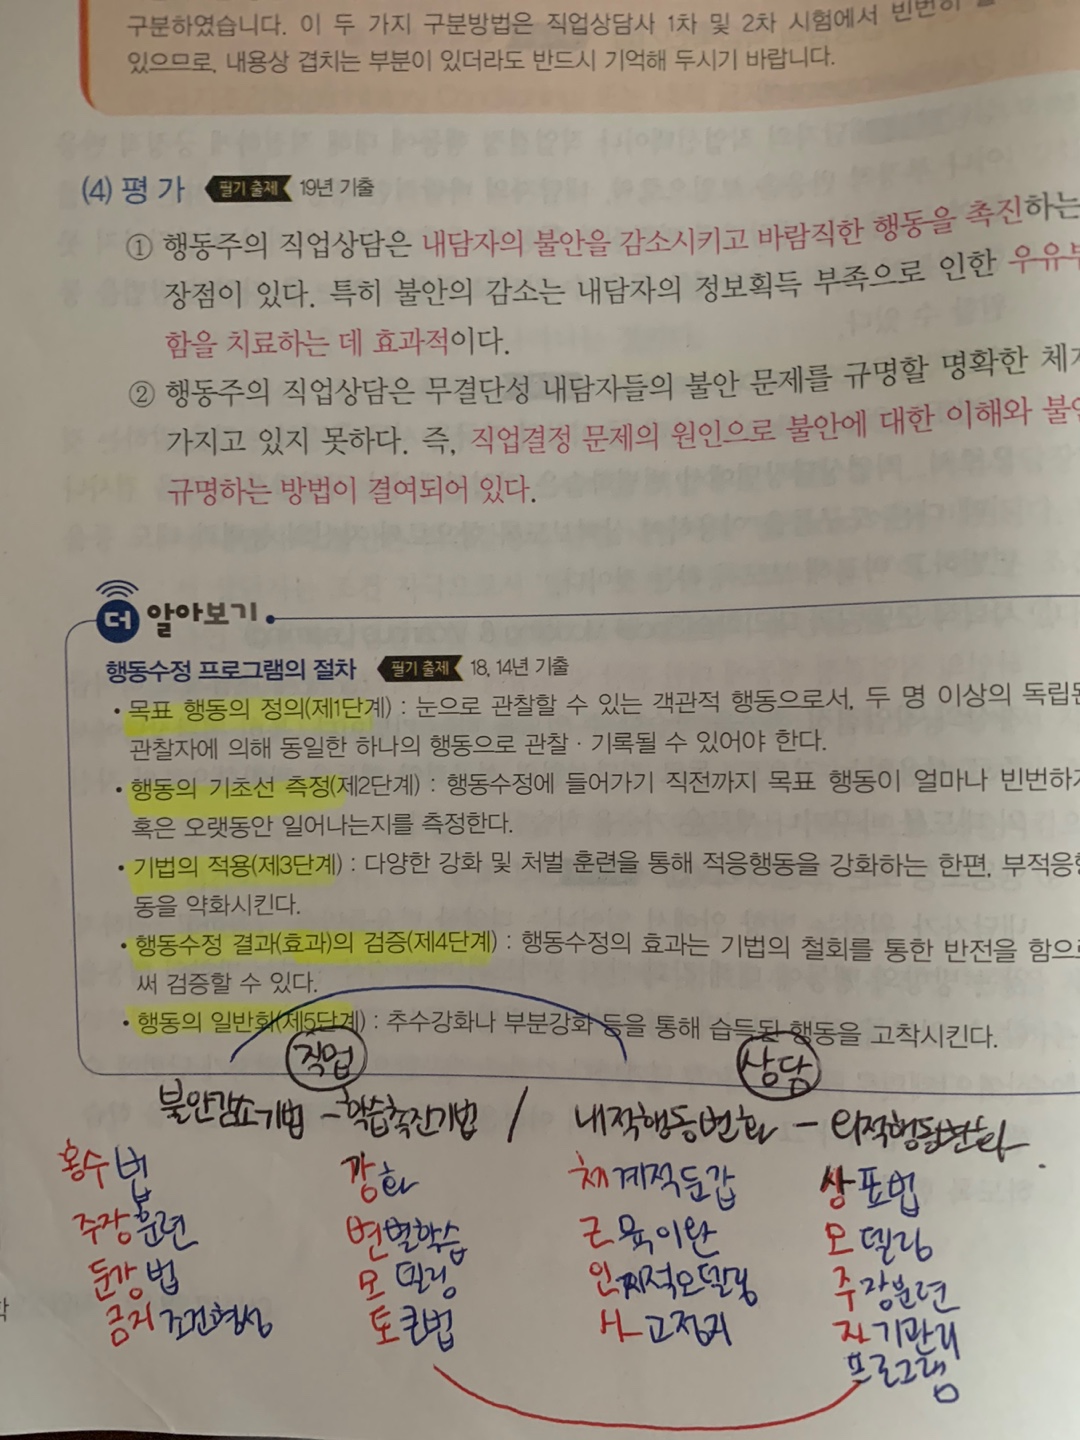 구분하였습니다. 이 두 가지 구분방법은 직업상담사 1차 및 2차 시험에서 빈번히
있으므로, 내용상 겹치는 부분이 있더라도 반드시 기억해 두시기 바랍니다.
(4) 평가 필기 출제 19년 기출
① 행동주의 직업상담은 내담자의 불안을 감소시키고 바람직한 행동을 촉진하는
장점이 있다. 특히 불안의 감소는 내담자의 정보획득 부족으로 인한 우유부
함을 치료하는 데 효과적이다.
② 행동주의 직업상담은 무결단성 내담자들의 불안 문제를 규명할 명확한 체계
가지고 있지 못하다. 즉, 직업결정 문제의 원인으로 불안에 대한 이해와 불안
규명하는 방법이 결여되어 있다.
더 알아보기
행동수정 프로그램의 절차 필기 출제 18, 14년 기출
• 목표 행동의 정의(제1단계) : 눈으로 관찰할 수 있는 객관적 행동으로서, 두 명 이상의 독립된
관찰자에 의해 동일한 하나의 행동으로 관찰 · 기록될 수 있어야 한다.
• 행동의 기초선 측정(제2단계) : 행동수정에 들어가기 직전까지 목표 행동이 얼마나 빈번하게
혹은 오랫동안 일어나는지를 측정한다.
• 기법의 적용(제3단계) : 다양한 강화 및 처벌 훈련을 통해 적응행동을 강화하는 한편, 부적응행
동을 약화시킨다.
• 행동수정 결과(효과)의 검증(제4단계) : 행동수정의 효과는 기법의 철회를 통한 반전을 함으로
써 검증할 수 있다.
• 행동의 일반화(제5단계) : 추수강화나 부분강화 등을 통해 습득된 행동을 고착시킨다.
직업 상담
불안감소기법 - 학습촉진기법 / 내적행동변화 - 외적행동변화
홍수법 강화 체계적둔감 상표법
주장훈련 변별학습 근육이완 모델링
둔감법 모델링 인지적모델링 주장훈련
금지조건형성 토큰법 사고정지 자기관리
프로그램